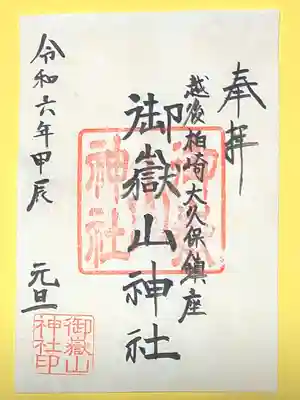 奉拝
越後柏崎大久保鎮座
御嶽山神社
令和六年甲辰 元旦
御嶽山
神社印